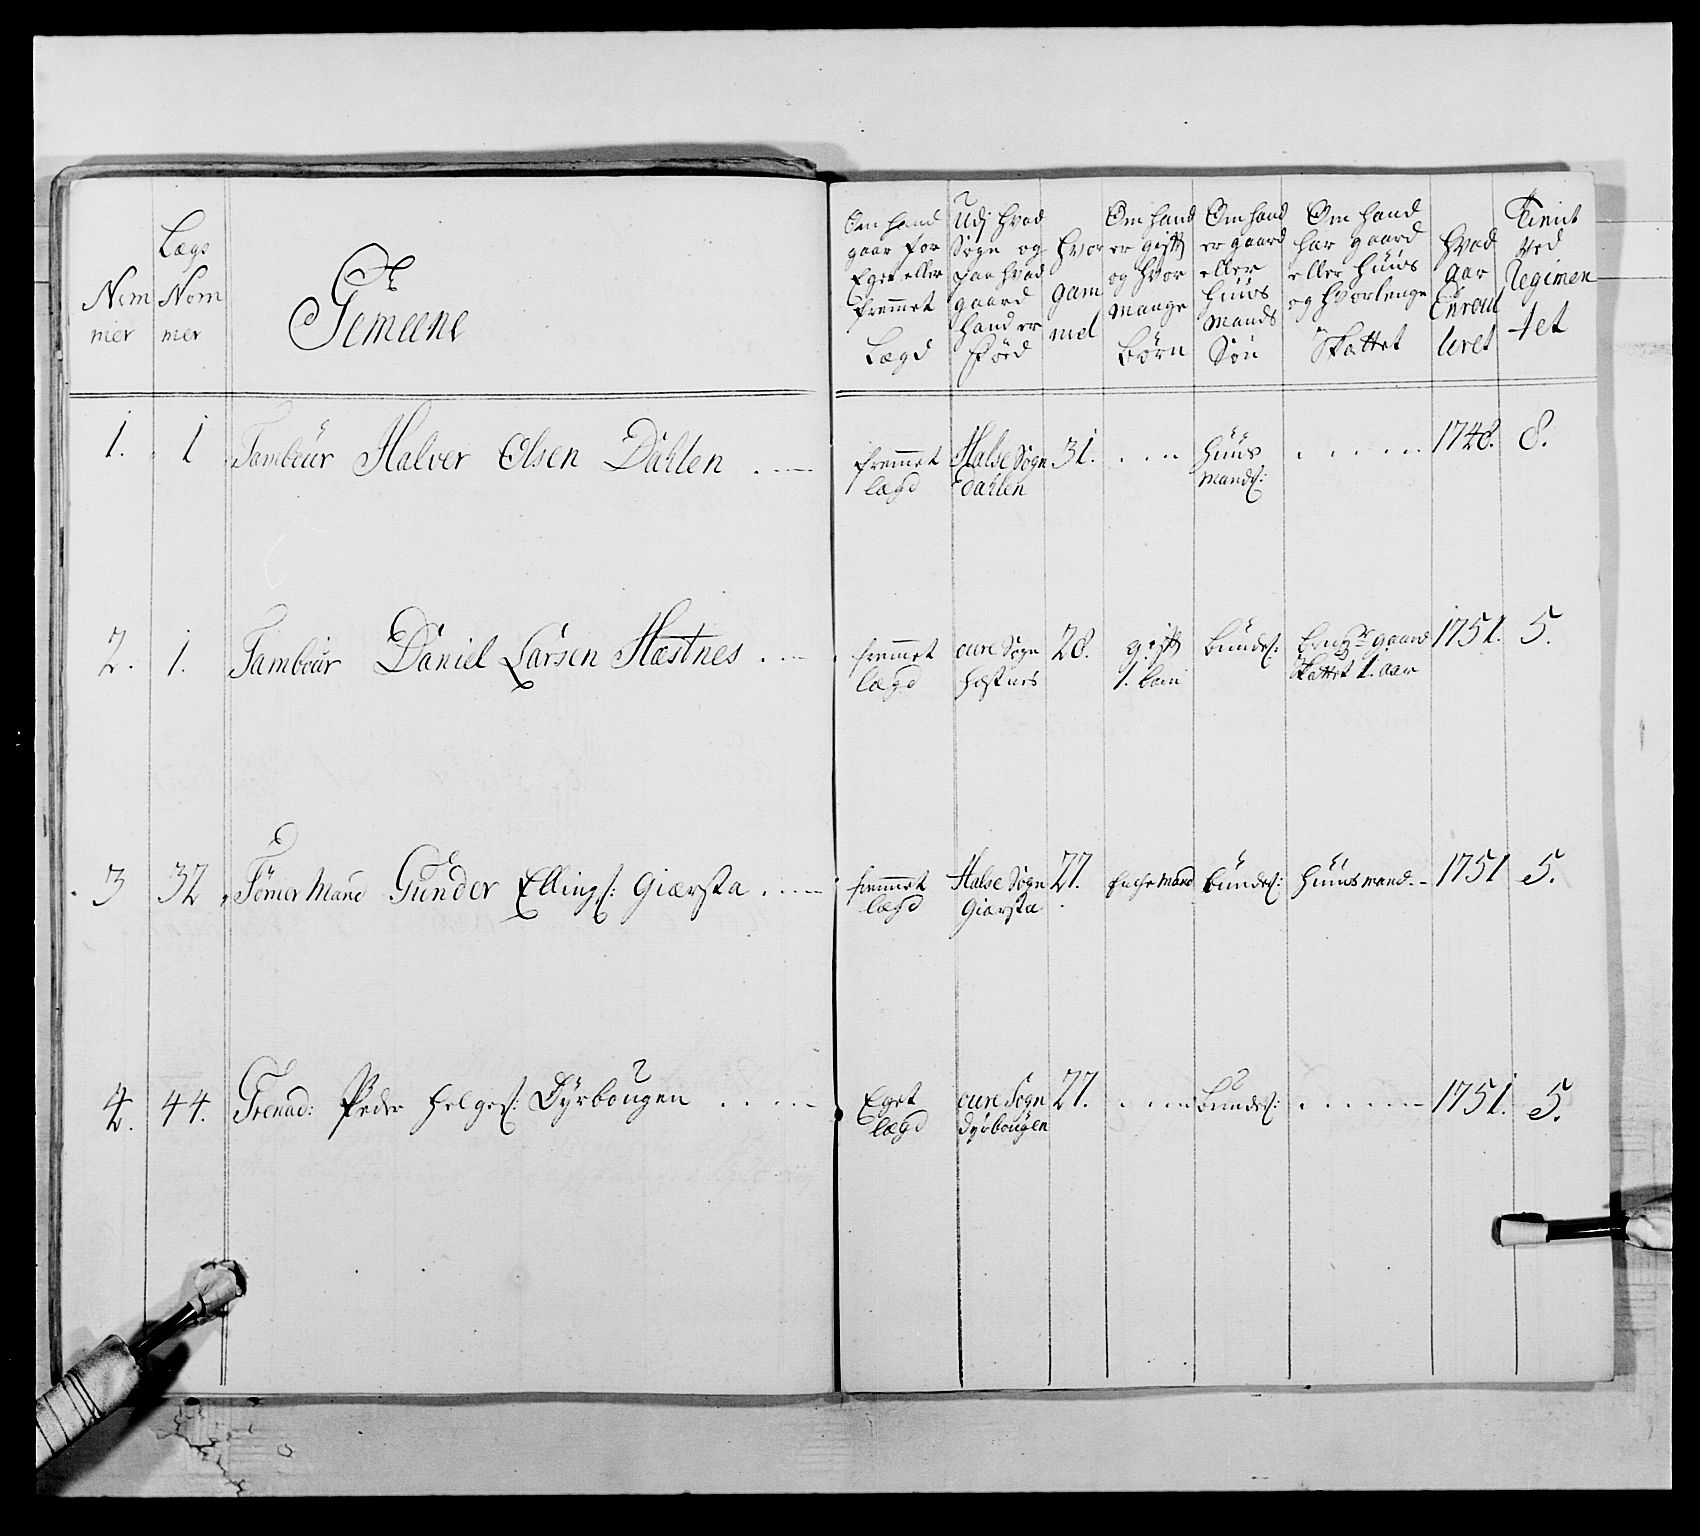 Nom
mer
Lægs
Nom
mer
Gemeene
Om hand
gaar for
Eget eller
fremmet
Lægd
Udj hvad
Sogn og
paa hvad
gaard
hand er
fød
hvor
gam
mel
Om hand
er gift
og hvor
mange
børn
Om hand
er gaard
eller
huus
mands
Søn
Om hand
har gaard
eller huus
og hvorlenge
Skattet
hvad
aar
Enroul
leret
Tient
ved
Regimen
tet
1. 1 Tambour Halver Olsen Dahlen
fremmet
lægd
Halse Sogn
Dahlen
31.
huus
mands:
1748. 8.
2. 1. Tambour Daniel Larsen Hæstnes
fremmet
lægd
oure Sogn
hæstnes
28.
gift
1. barn
bundes:
gaard
Skattet 1. aar
1751. 5.
3 32 Tømer Mand Gunder Ellings: Giærsta
fremmet
lægd
Halse Sogn
Giærsta
27.
Enche Mand
bundes:
huusmand
1751 5.
4. 44. Grenad: Peder Helges: Dyrbougen
Eget
lægd
oure Sogn
dyrbougen
27.
Bundes:
1751. 5.